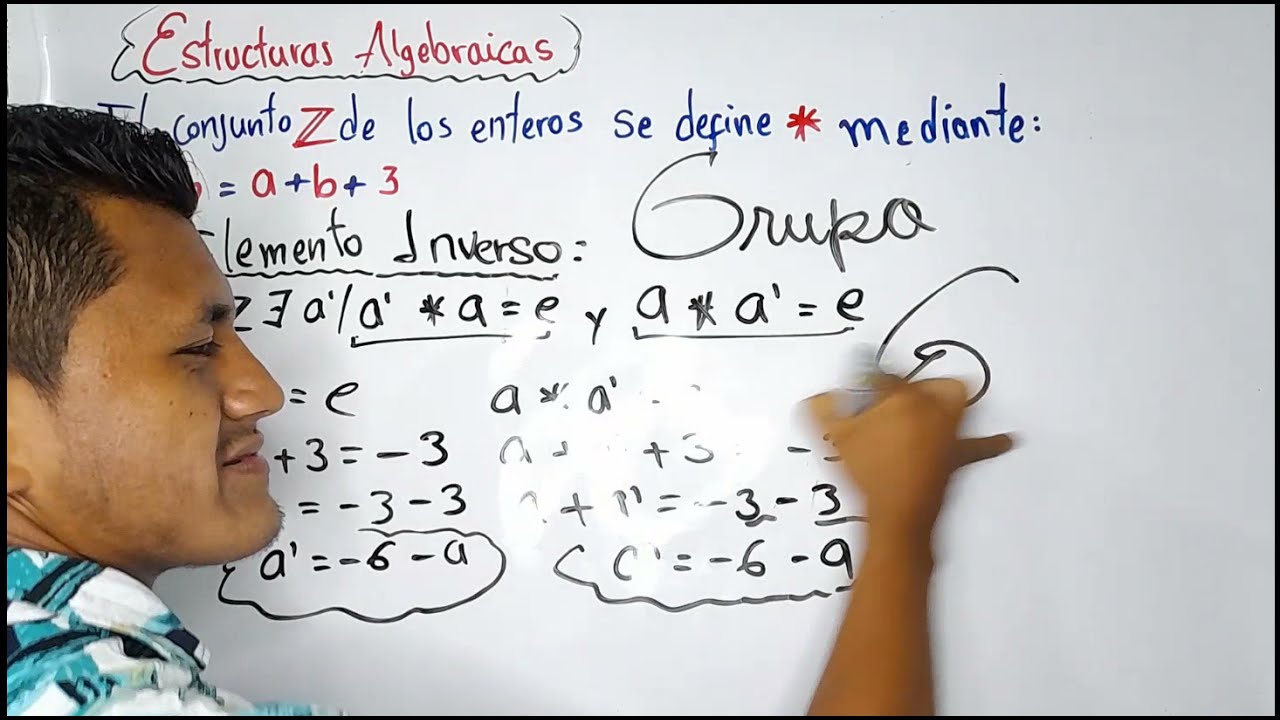 Estructuras Algebraicas
conjunto Z de los enteros se define * mediante:
= a+b+3
Grupo
Elemento Inverso:
Z∃a'/a' * a = e y a * a' = e
= e a * a'
+3 = -3 a + +3 -3
= -3-3 + a' = -3-3
a' = -6-a = -6-a